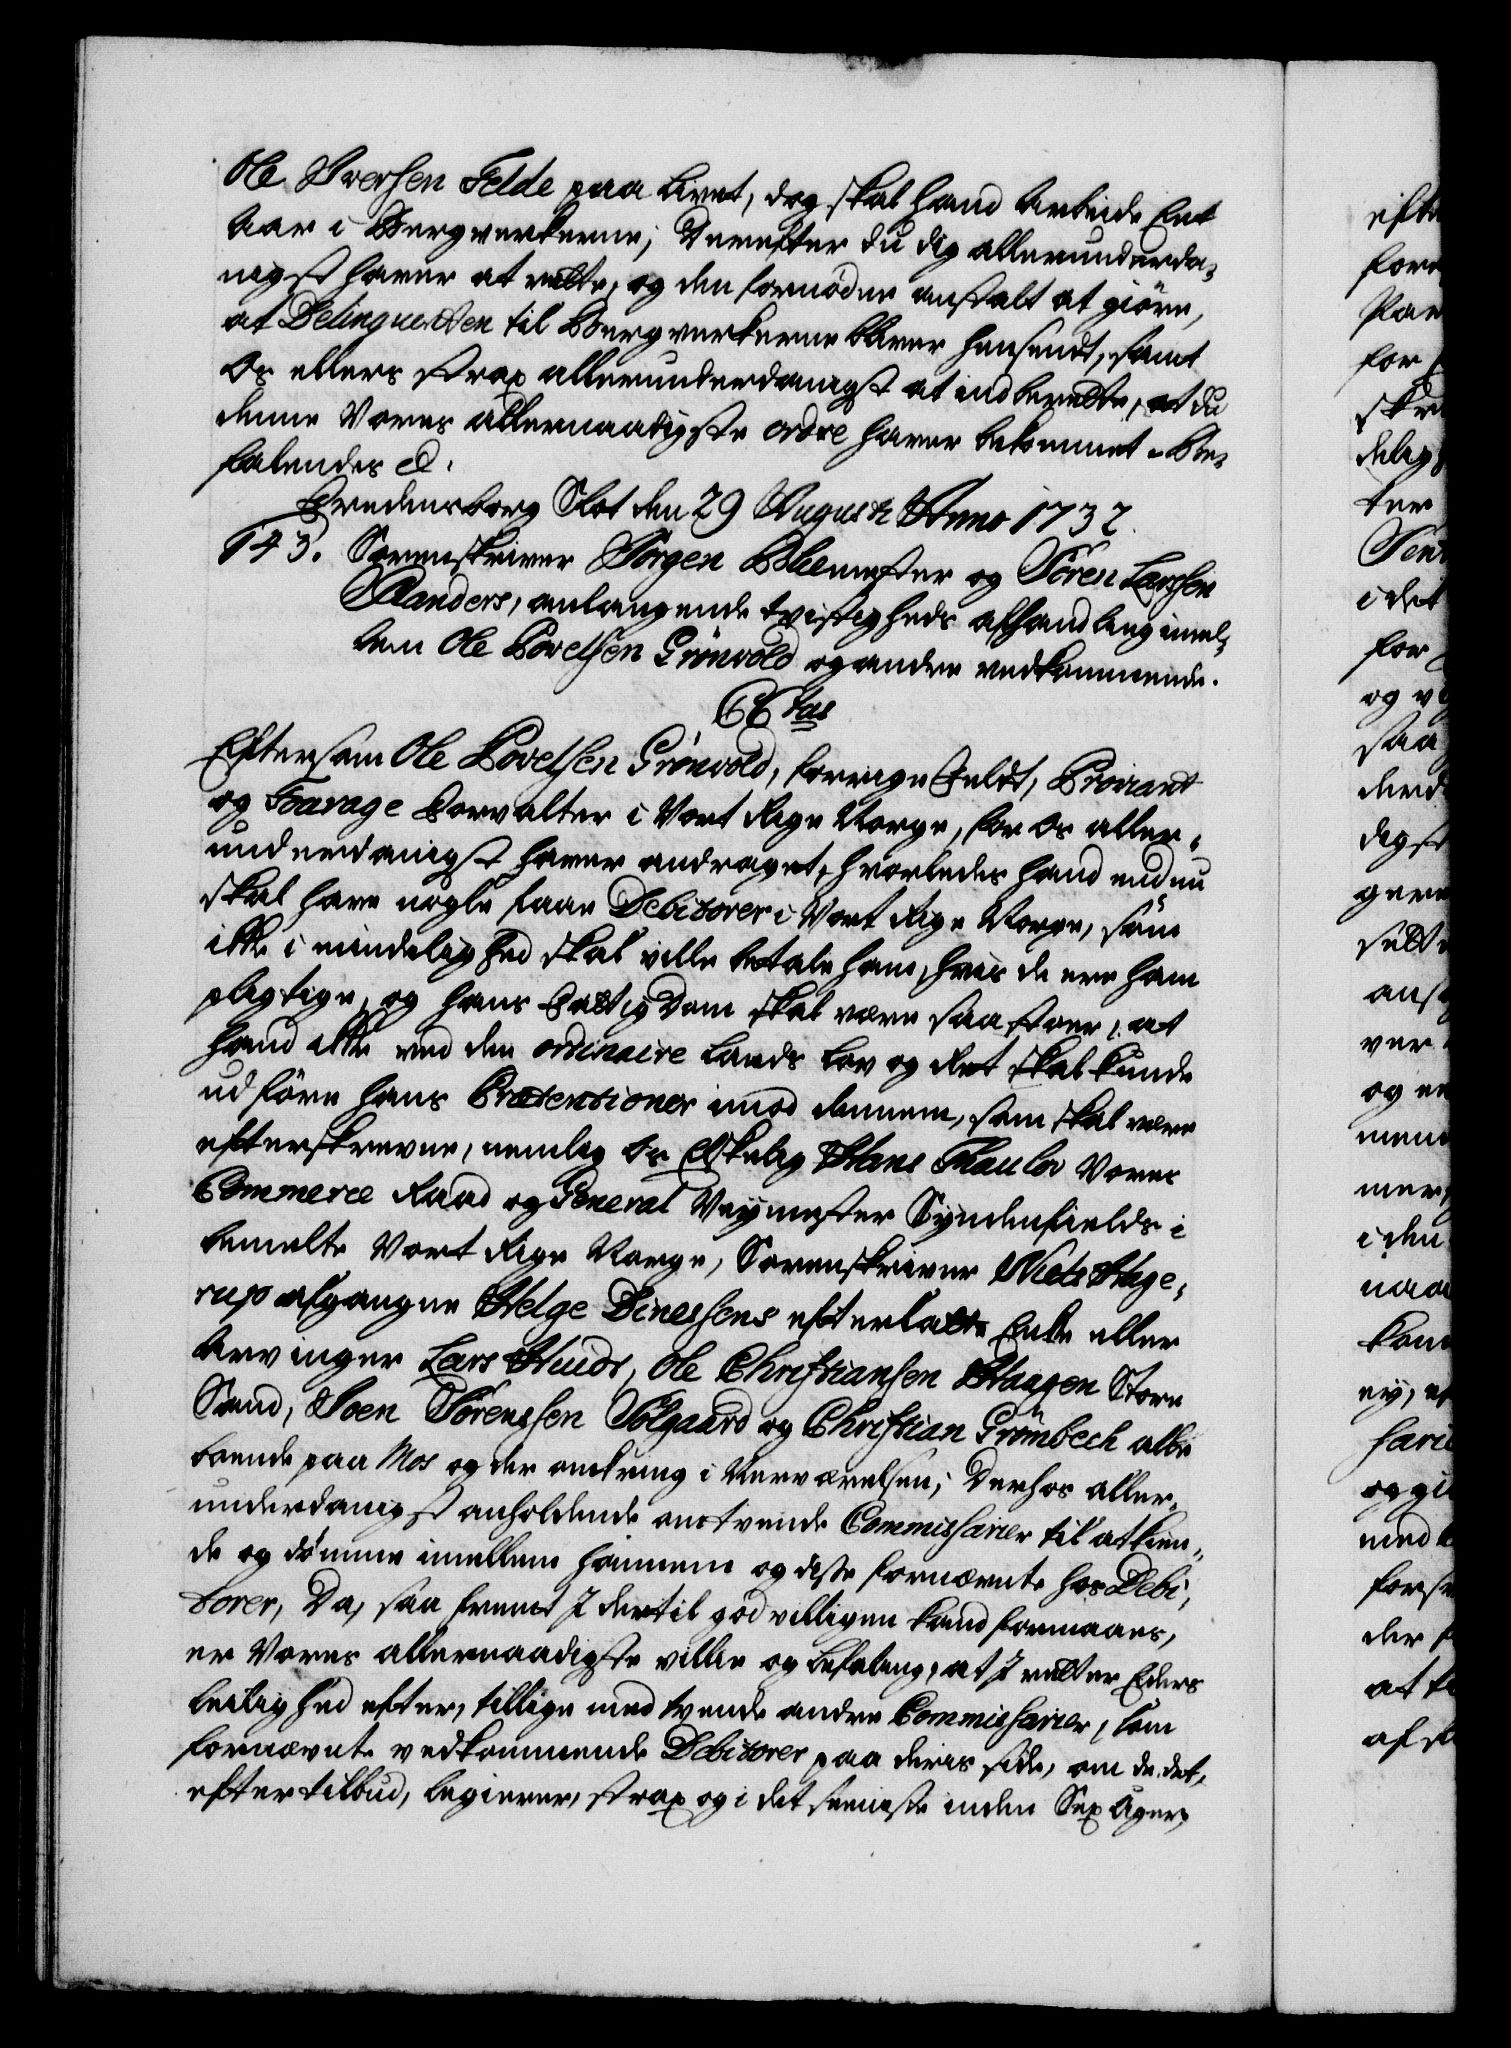 Ole Iversen Felde paa livet, dog skal hand arbeide Eet
Aar i Bergverkerne; Derefter du dig allerunderda-
nigst haver at rette, og den fornødne anstalt at giøre,
at Delinqventen til Bergverkerne bliver hensendt, samt
Os ellers strax allerunderdanigst at indberette, at du
denne Vores allernaadigste ordre haver bekommet. Be-
falendes &.
Fredensborg Slot den 29 Augusti Anno 1732
143. Sorenskriver Jørgen Blumester og Søren Larssen
Randers, anlangende tvistigheds afhandling imel-
lem Ole Povelsen Grønvold og andre vedkommende.
C 6tus
Eftersom Ole Povelsen Grønvold, forrige Feldt, Proviant
og Fourage Forvalter i Vort Rige Norge, for Os aller-
underdanigst haver andraget, hvorledes hand endnu
skal have nogle faae Debitorer i Vort Rige Norge, som
ikke i mindelighed skal ville betale ham, hvis de ere ham
pligtige, og hans Fattigdom skal være saa stoer, at
hand ikke ved den ordinaire Lands Lov og Ret skal kunde
udføre hans Prætentioner imod dennem, som skal være
efterskrevne, nemlig Os Elskelig Hans Thaulov Vores
Commerce Raad og General Veymester Syndenfields i
bemelte Vort Rige Norge, Sorenskriver Niels Hage-
rup afgangne Helge Dinessens efterlatte Enke eller
Arvinger Lars Huids, Ole Christiansen Haagen Store
Sand, Joen Sørenssen Solgaard og Christian Grønbech alle
boende paa Mos og der omkring i Nerværelsen; Derhos aller-
underdanigst anholdende om tvende Commissarier til at kien-
de og dømme imellem hannem og disse fornævnte hs Debi-
torer, Da, saa fremt I dertil godvilligen kand formaaes,
er Vores allernaadigste villie og befaling, at I retter Eders
leilighed efter, tillige med tvende andre Commissarier, som
fornævnte vedkommende Debitorer paa deris side, om de det,
efter tilbud, begierer, strax og i det seeniste inden Sex Uger,